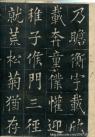 乃瞻衡宇載欣
載奔童僕歡迎
稚子候門三徑
就荒松菊猶存